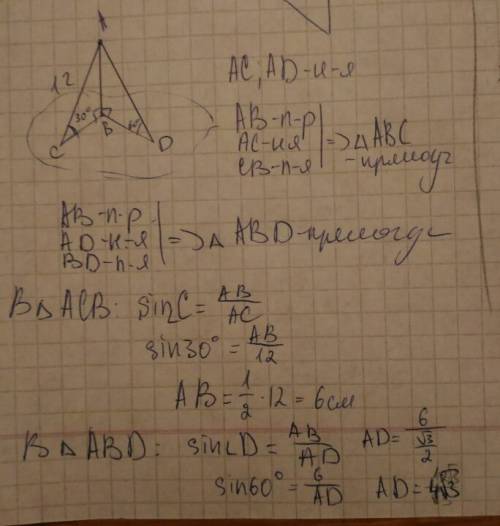 A
12
30°
60°
C
B
D
AC; AD-н-я
AB-п-р
AC-н-я
CB-п-я
=> △ABC
-прямоуг
AB-п-р
AD-н-я
BD-п-я
=> △ ABD-прямоуг
В △ ACB: sin∠C = AB/AC
sin30° = AB/12
AB = 1/2 · 12 = 6 см
В △ ABD: sin∠D = AB/AD AD = 6/(√3/2)
sin60° = 6/AD AD = 4√3